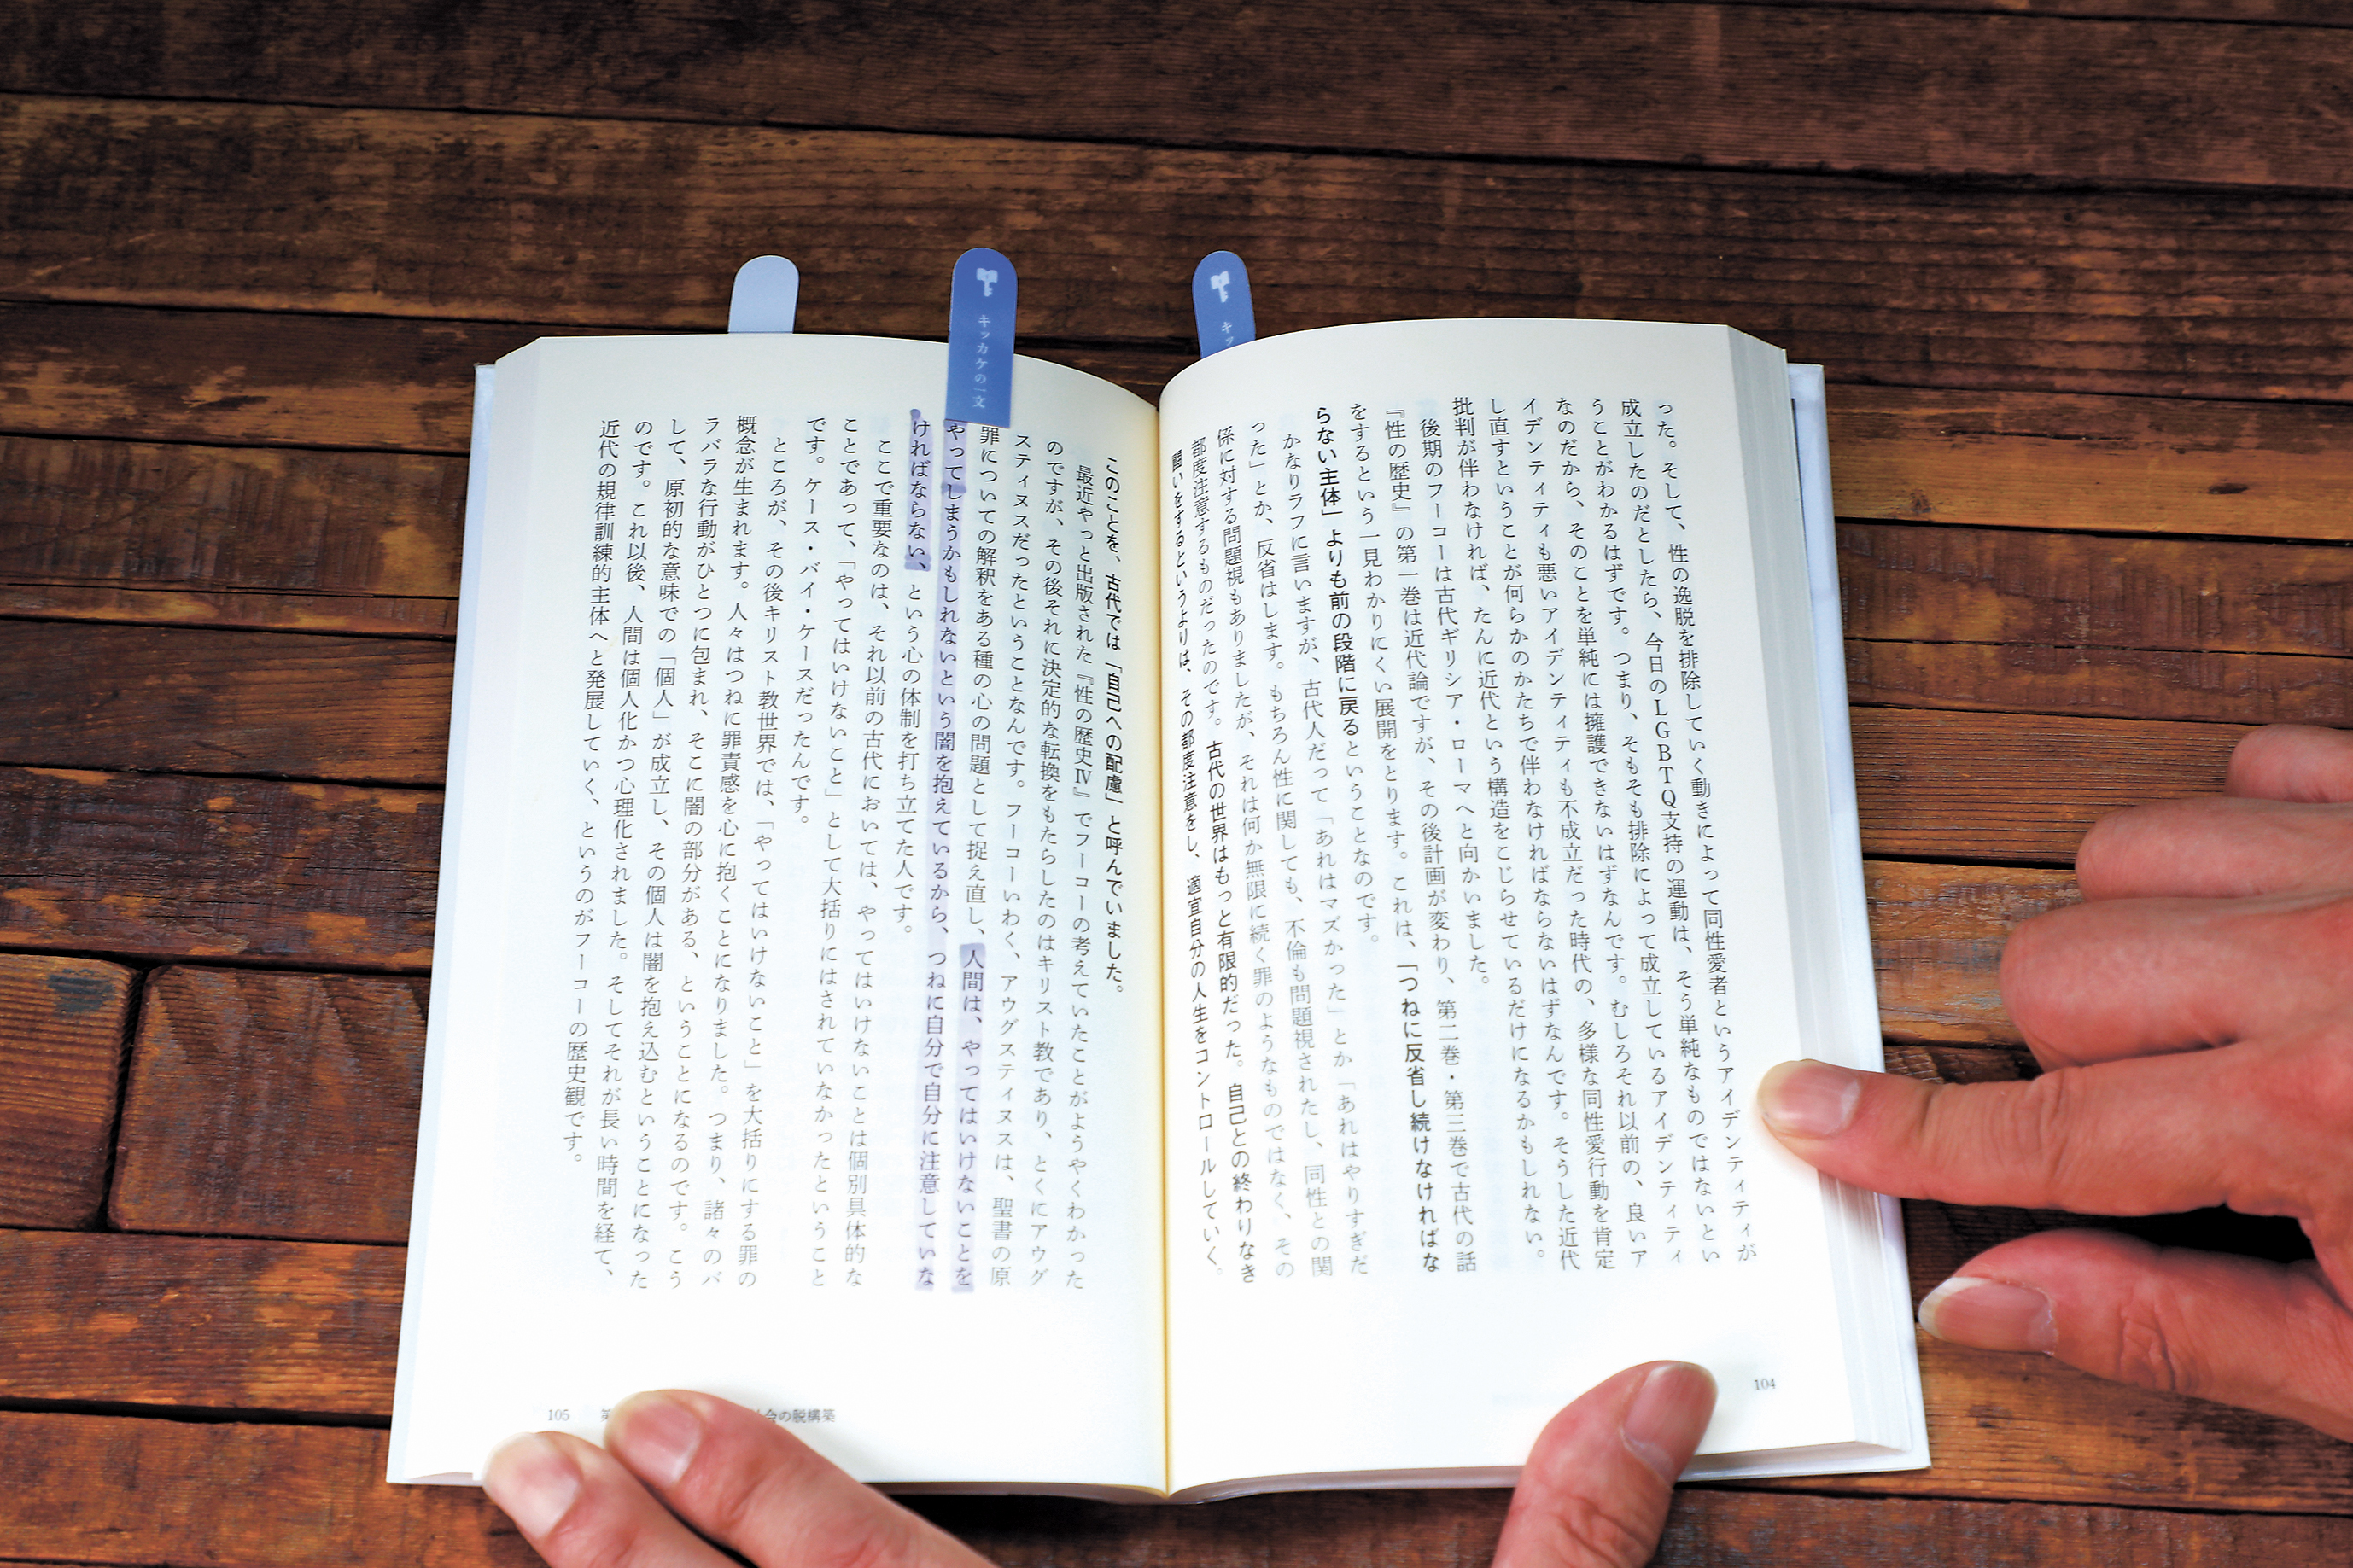 った。そして、性の逸脱を排除していく動きによって同性愛者というアイデンティティが
成立したのだとしたら、今日のLGBTQ支持の運動は、そう単純なものではないとい
うことがわかるはずです。つまり、そもそも排除によって成立しているアイデンティティ
なのだから、そのことを単純には擁護できないはずなんです。むしろそれ以前の、良いア
イデンティティも悪いアイデンティティも不成立だった時代の、多様な同性愛行動を肯定
し直すということが何らかのかたちで伴わなければならないはずなんです。そうした近代
批判が伴わなければ、たんに近代という構造をこじらせているだけになるかもしれない。
後期のフーコーは古代ギリシア・ローマへと向かいました。
『性の歴史』の第一巻は近代論ですが、その後計画が変わり、第二巻・第三巻で古代の話
をするという一見わかりにくい展開をとります。これは、「つねに反省し続けなければな
らない主体」よりも前の段階に戻るということなのです。
かなりラフに言いますが、古代人だって「あれはマズかった」とか「あれはやりすぎだ
った」とか、反省はします。もちろん性に関しても、不倫も問題視されたし、同性との関
係に対する問題視もありましたが、それは何か無限に続く罪のようなものではなく、その
都度注意するものだったのです。古代の世界はもっと有限的だった。自己との終わりなき
闘いをするというよりは、その都度注意をし、適宜自分の人生をコントロールしていく。
104
キッカケの一文
キッ
このことを、古代では「自己への配慮」と呼んでいました。
最近やっと出版された『性の歴史Ⅳ』でフーコーの考えていたことがようやくわかった
のですが、その後それに決定的な転換をもたらしたのはキリスト教であり、とくにアウグ
スティヌスだったということなんです。フーコーいわく、アウグスティヌスは、聖書の原
罪についての解釈をある種の心の問題として捉え直し、人間は、やってはいけないことを
やってしまうかもしれないという闇を抱えているから、つねに自分で自分に注意していな
ければならない、という心の体制を打ち立てた人です。
ここで重要なのは、それ以前の古代においては、やってはいけないことは個別具体的な
ことであって、「やってはいけないこと」として大括りにはされていなかったということ
です。ケース・バイ・ケースだったんです。
ところが、その後キリスト教世界では、「やってはいけないこと」を大括りにする罪の
概念が生まれます。人々はつねに罪責感を心に抱くことになりました。つまり、諸々のバ
ラバラな行動がひとつに包まれ、そこに闇の部分がある、ということになるのです。こう
して、原初的な意味での「個人」が成立し、その個人は闇を抱え込むということになった
のです。これ以後、人間は個人化かつ心理化されました。そしてそれが長い時間を経て、
近代の規律訓練的主体へと発展していく、というのがフーコーの歴史観です。
105 会の脱構築